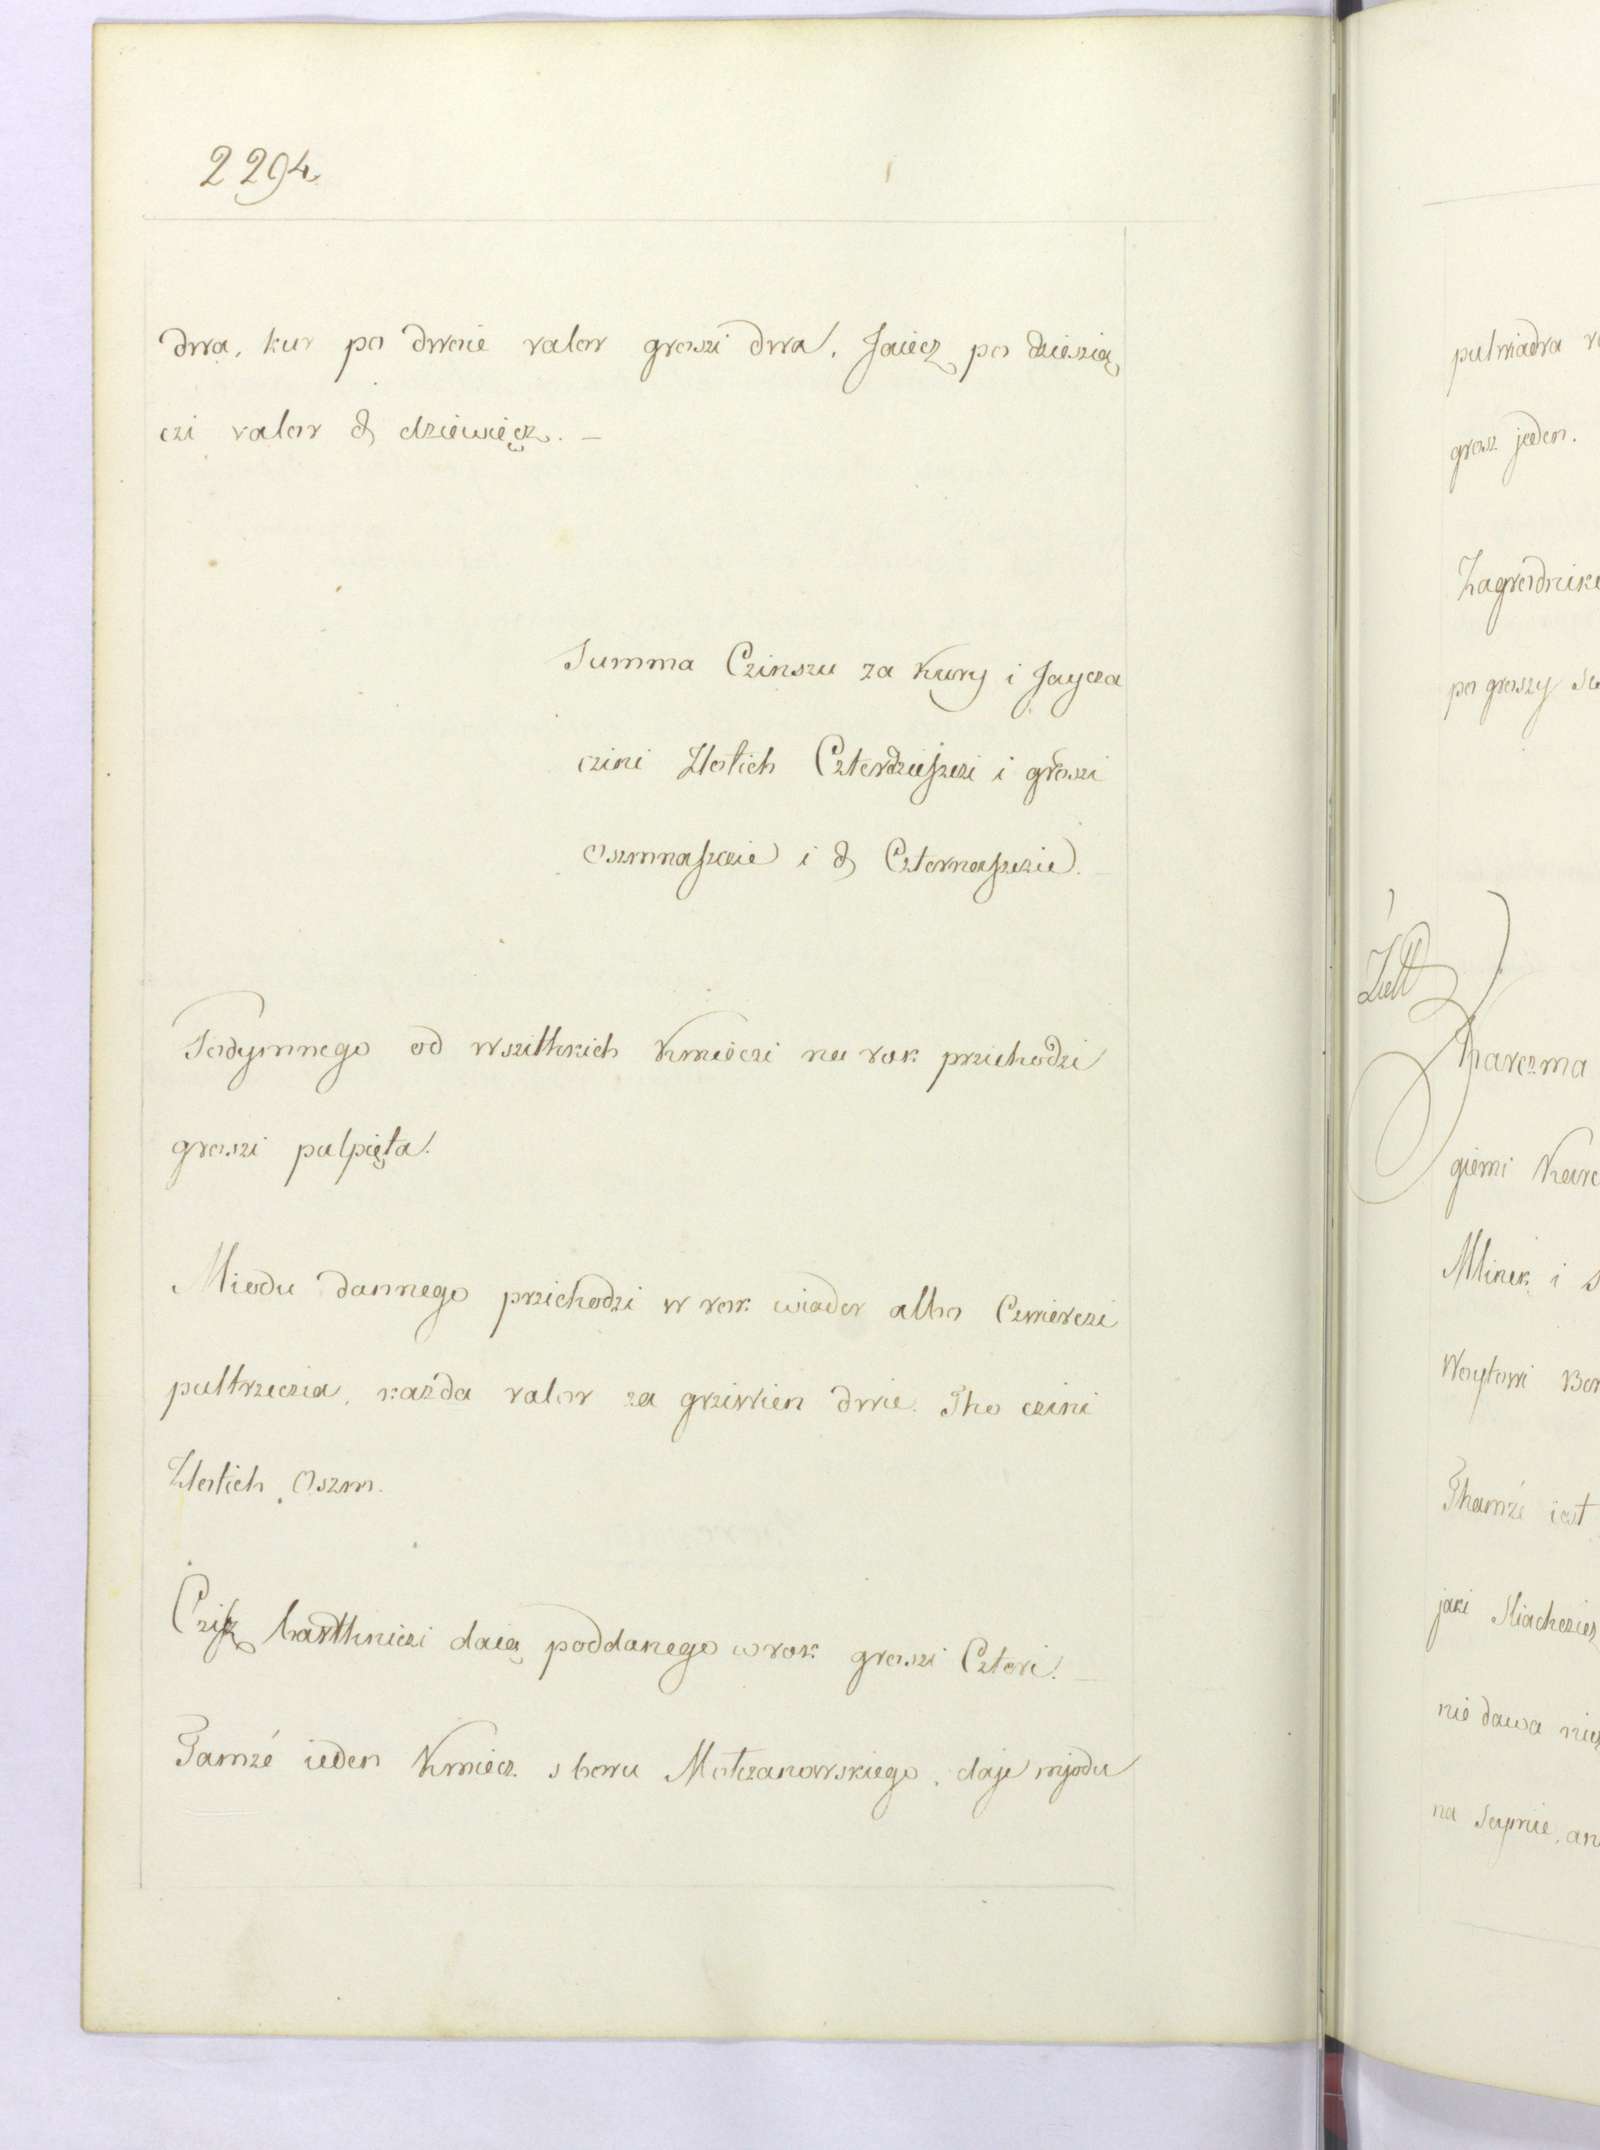 2294
dwa, kur po dwoie valor groszi dwa, Jaiecz po dzieszią
czi valor ₰ dziewięcz. —
Summa Czinszu za Kury i Jaycza
czini Zlotich Czterdzieszczi i groszi
oszmnaszczie i ₰ Czternaszczie. —
Podymnego od wszithkich Kmieczi na rok przichodzi
groszi pulpięta.
Miodu dannego przichodzi w rok wiader albo Czwierczi
pultrzeczia, każda valor za grziwien dwie. Tho czini
Zlotich Oszm.
Cziż barthniczi daią poddanego w rok groszi Czteri. —
Tamże ieden Kmiecz s boru Motczanowskiego, daje mjodu
pulwiadra
grosz jeden.
po groszy
Zell
Kharczma
giemi
Mlinek i
Woytowi
Thamże iest
jaki
nie dawa
na Seymie,